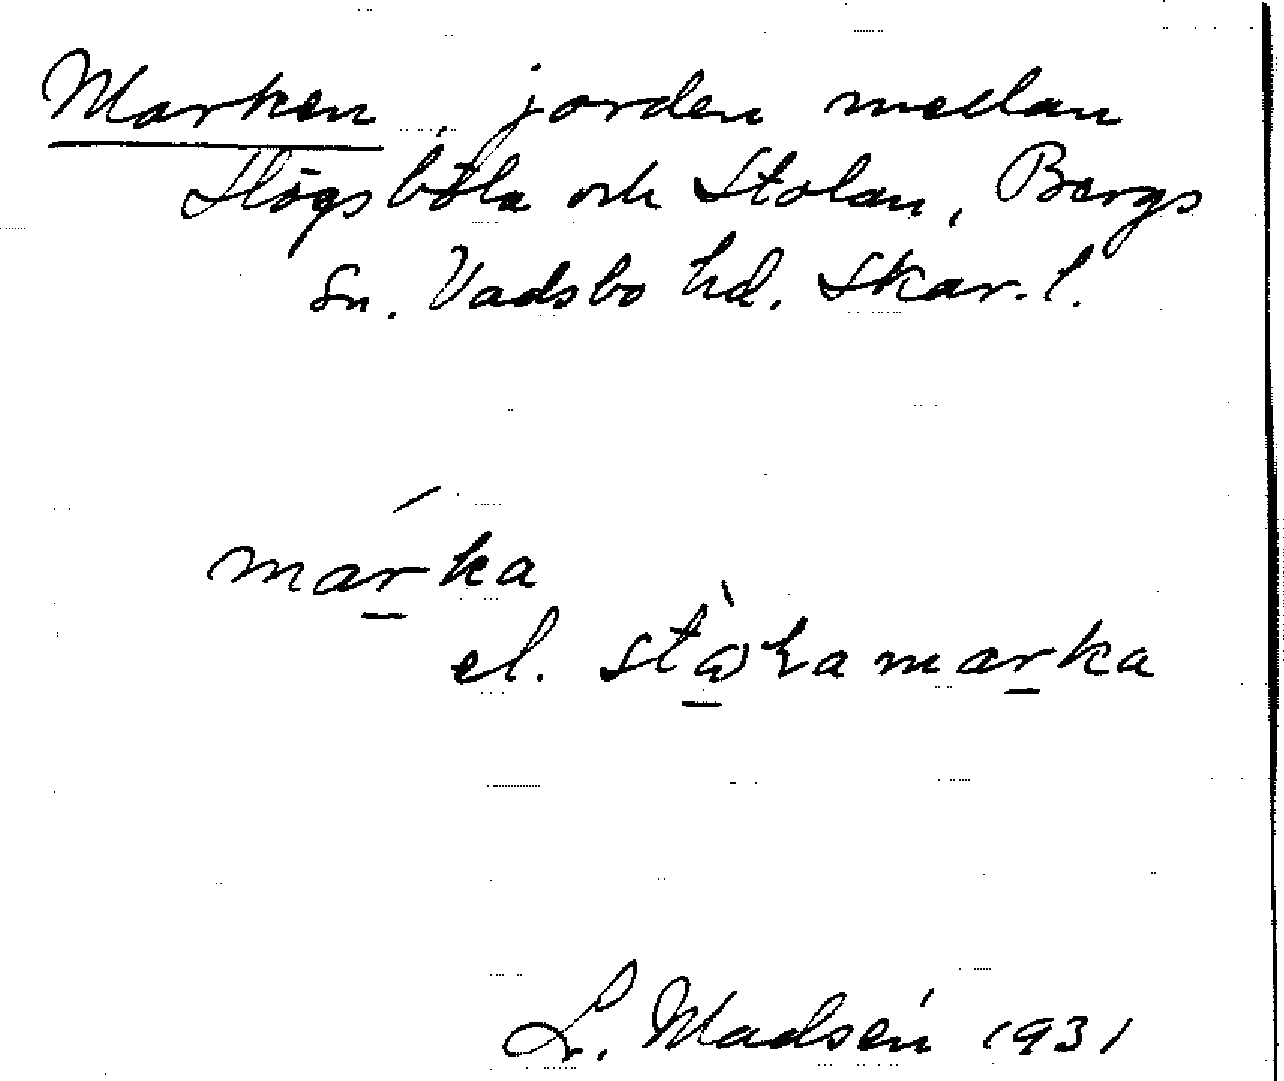 Marken, jorden mellan
Högsböla och Stolan, Bergs
sn. Vadsbo hd. Skar. l.
marka
el. marka
L. Madsén 1931